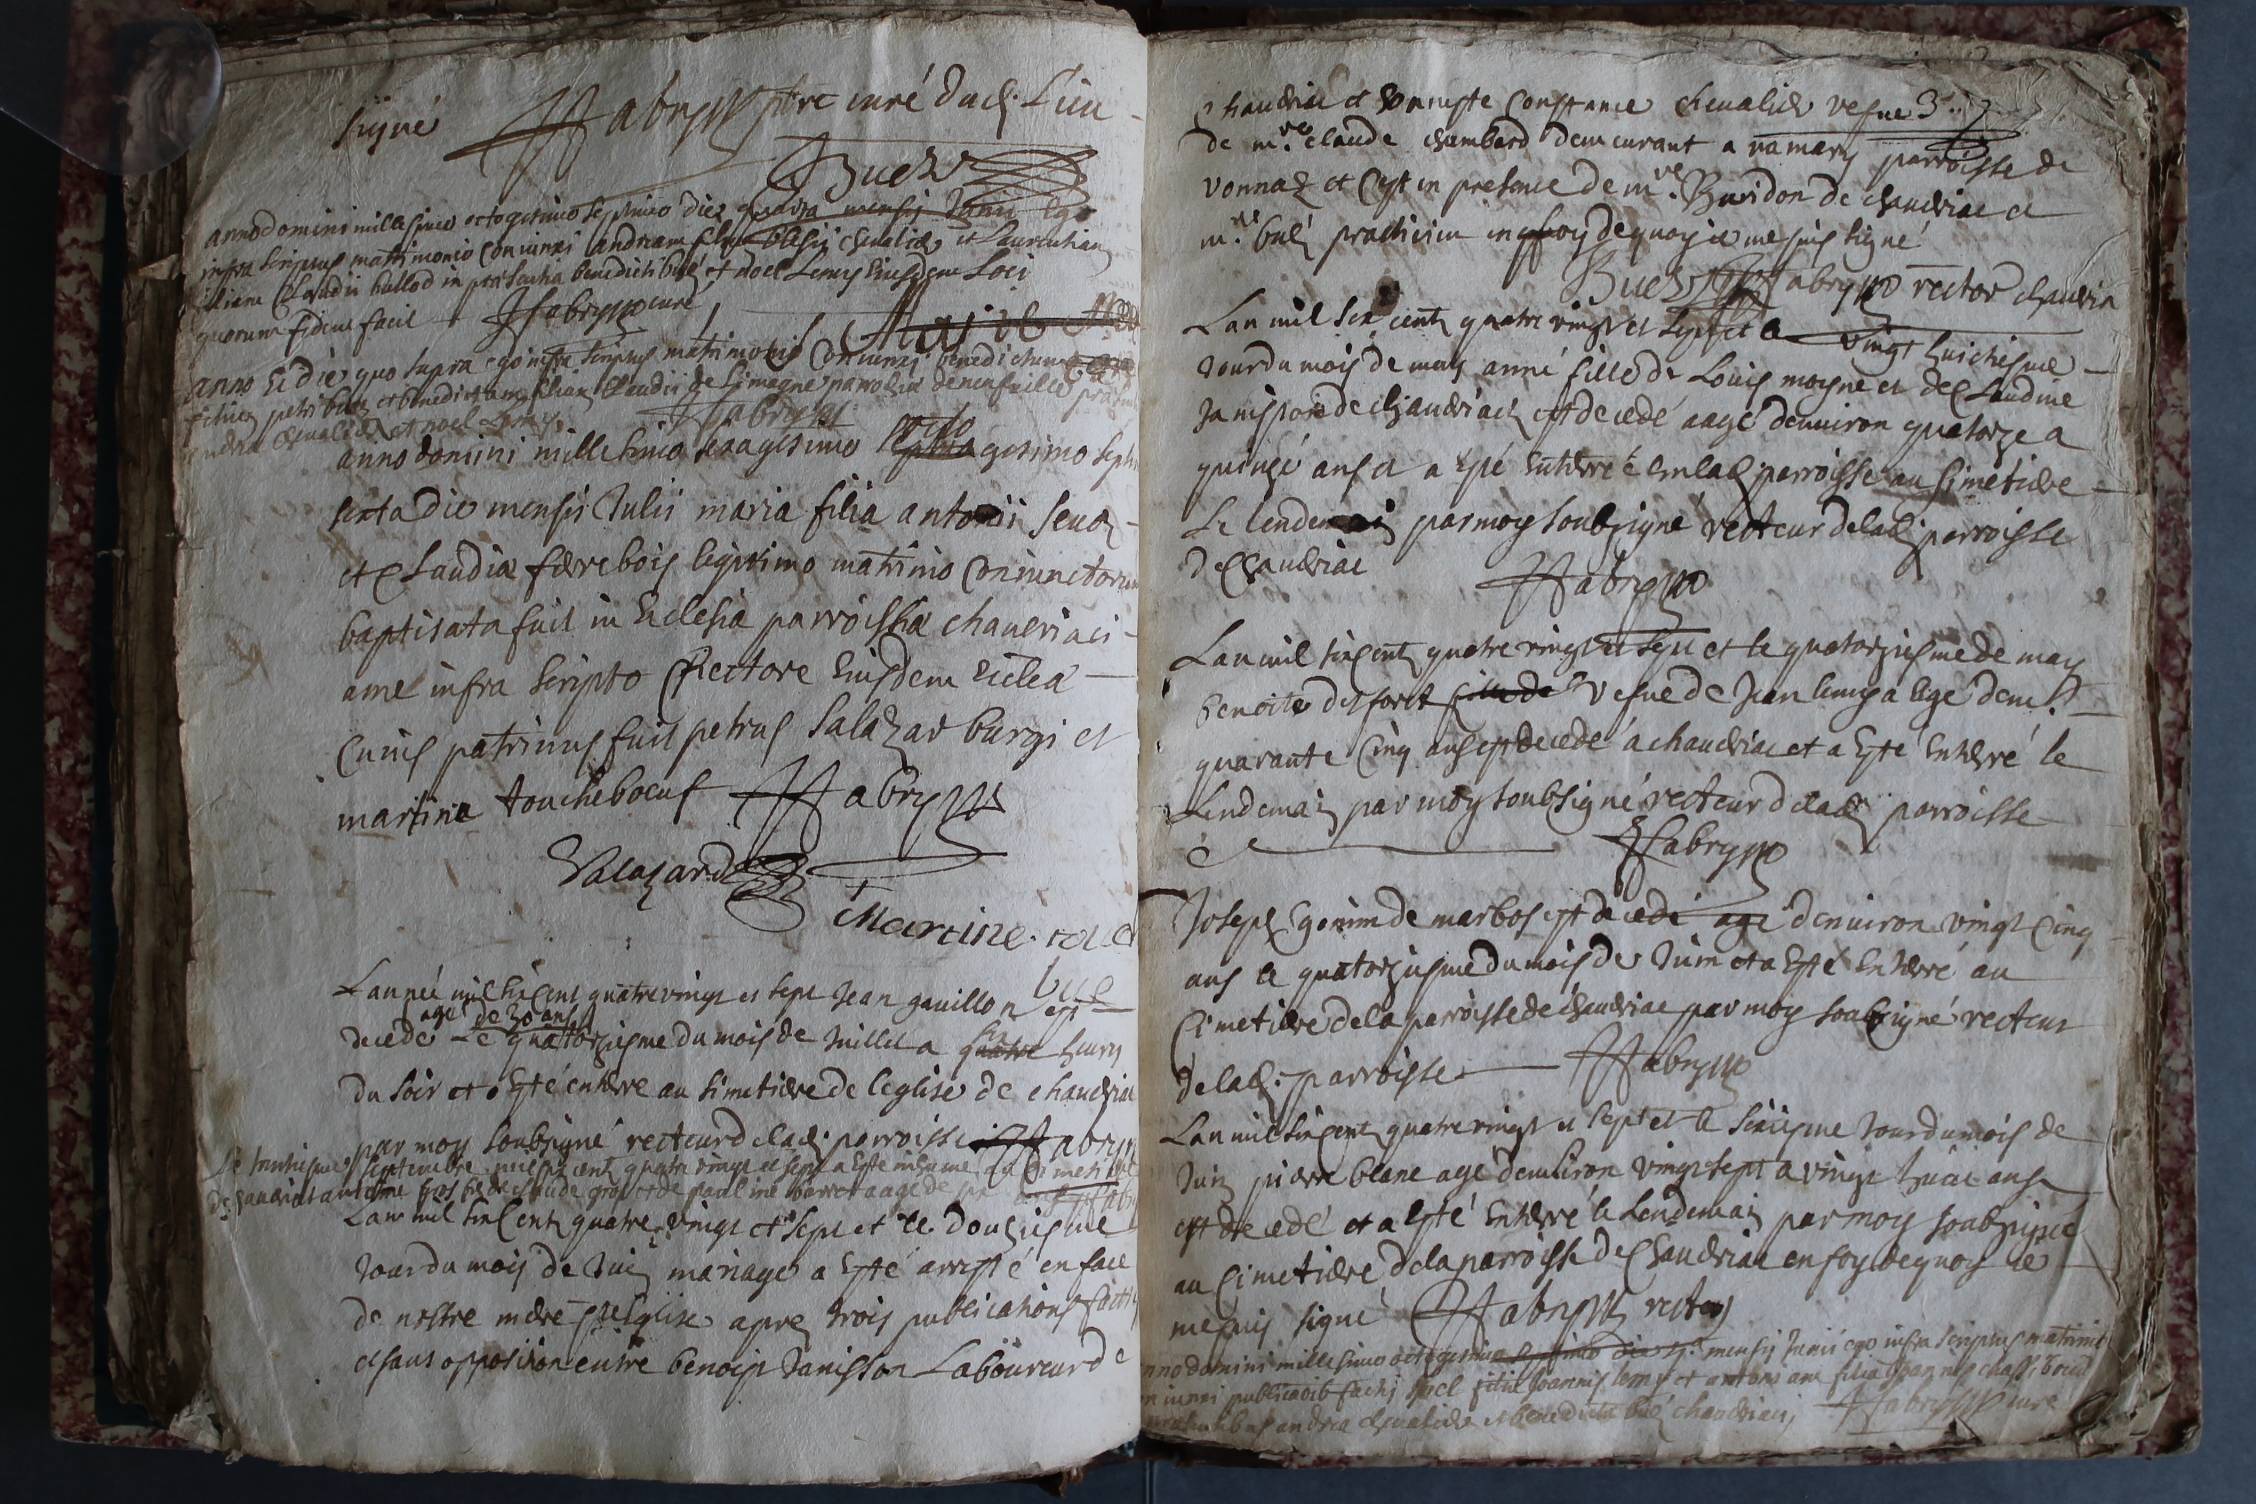 signé JFabryptre curé dud. Lieu
Buez
anno domini millesimo octogesimo septimo die quarta mensis Junii Ego
infra scriptus matrimonio coniunxi andream filium blesii chevalier et Laurentiam
filiam Claudii ballod in præsentia benedicti bué et noel Lemy Eiusdem Loci
quorum fidem facit JFabry curé
anno Et die quo supra ego infra scriptus matrimonio coniunxi benedictum
filium petri et benedictam filiam Claudii de Limagne parrochiæ de neufville
andrea chevalier et noel Lemy JFabry
anno domini millesimo sexagesimo octuagesimo sept
sexta die mensis Julii maria filia antonii seud
et Claudiæ ferrebois legitimo matrimo coniunctorum
baptisata fuit in Eclesia parroissiæ chaveriaci
a me infra scripto Rectore Eiusdem Eclea
Cuius patrinus fuit petrus Salazar burgi et
martina toucheboeuf JFabry
Salazard
Martine
L'année mil six cent quatre vingt et sept Jean gavillon est
age de 30 ans
decedé Le quatorziesme du mois de Juillet a six heures
du soir et a Esté enterre au simetiere de leglise de chaveriac
par moy soubsigné recteur de lad. parroisse JFabry
septembre mil six cent quatre vingt et sept a Esté inhumé au Cimetiere
de chaveriat antoine gros fils de claude gros et de pauline aagé de
Lan mil six cent quatre vingt et sept et le douziesme
Jour du mois de Juin mariage a Esté arresté en face
de nostre mere Ste Eglise apres trois publications faites
et sans opposition entre benoist Janisson Laboureur de
chaveriac et honneste Constance chevalier vefve
de mre. claude chambard demeurant a namary parroisse de
vonnaz et c'est in presence de mre. Buridon de chaveriac et
mre. bué practicien en foy de quoy je me suis signé
Buez JFabry rector chaveria
Lan mil six cent quatre vingt et sept et le vingt huictiesme
Jour du mois de may anne fille de Louis moyne et de Claudine
Janisson de chaveriac est decedé aagé denviron quatorze a
quinze ans et a Esté Enterré en lad. parroisse au Simetiere
Le lendemain par moy soubsigné recteur de lad. parroisse
de chaveriac JFabry
Lan mil six cent quatre vingt et sept et le quatorziesme de may
benoite desforet fille de vefve de Jean lemy a lage denv.
quarante cinq ans est decedé a chaveriac et a Esté Enterré le
Lendemain par moy soubsigné recteur de lad. parroisse
JFabry
Joseph gonin de marbos est decedé agé denviron vingt cinq
ans le quatorziesme du mois de Juin et a Esté Enterré au
Cimetiere de la parroisse de chaveriac par moy soubsigné recteur
de lad. parroisse JFabry
Lan mil six cent quatre vingt et sept et le sixiesme Jour du mois de
Juin pierre blanc agé denviron vingt sept a vingt huict ans
est decedé et a Esté Enterré le Lendemain par moy soubsigné
au Cimetiere de la parroisse de chaveriac en foy de quoy je
me suis signé JFabry recteur
anno domini millesimo octogesimo septimo die mensis Junii ego infra scriptus matrimo
coniunxi publicaoib factis noel filiu Joannis lemy et antoniam filia Joannes
præsentibus andrea chevalier et benedicto bué chaveriaci JFabry curé